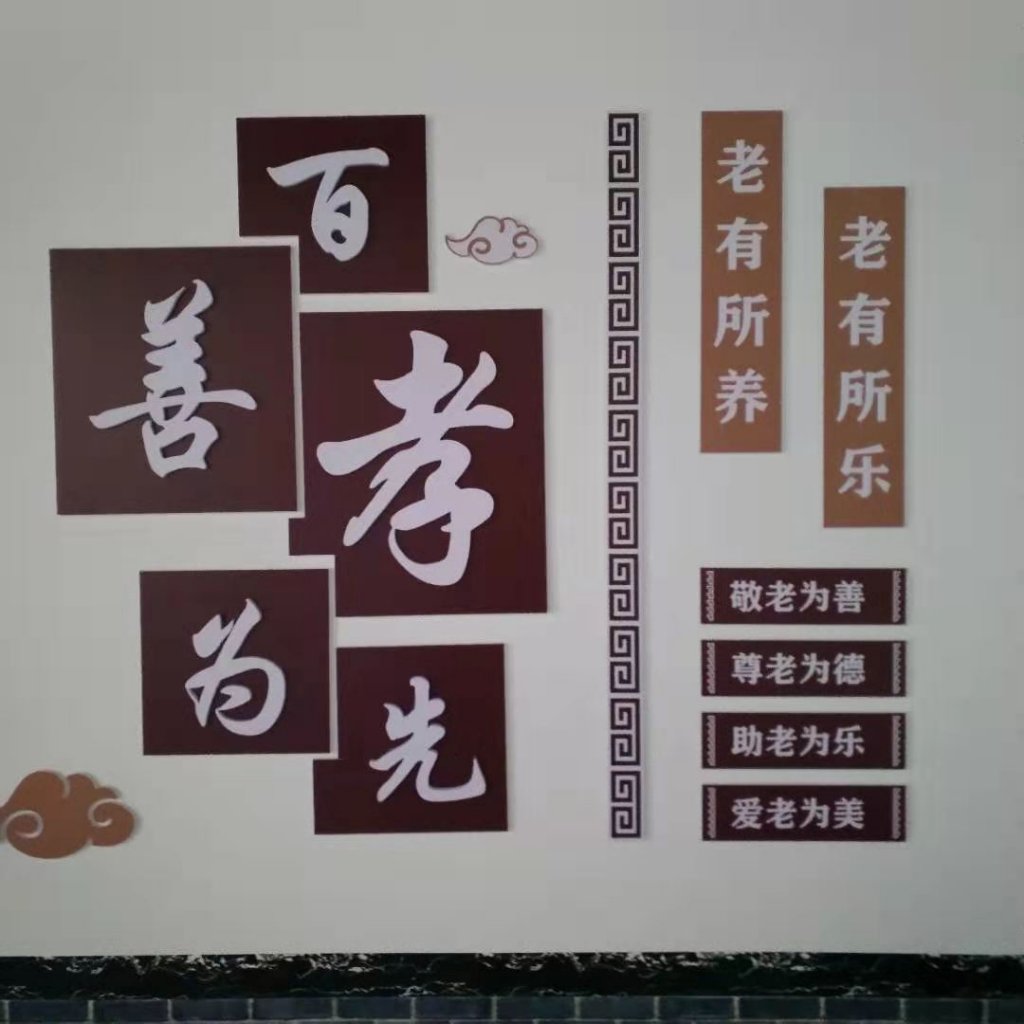 百
善
孝
为
先
老有所养
老有所乐
敬老为善
尊老为德
助老为乐
爱老为美